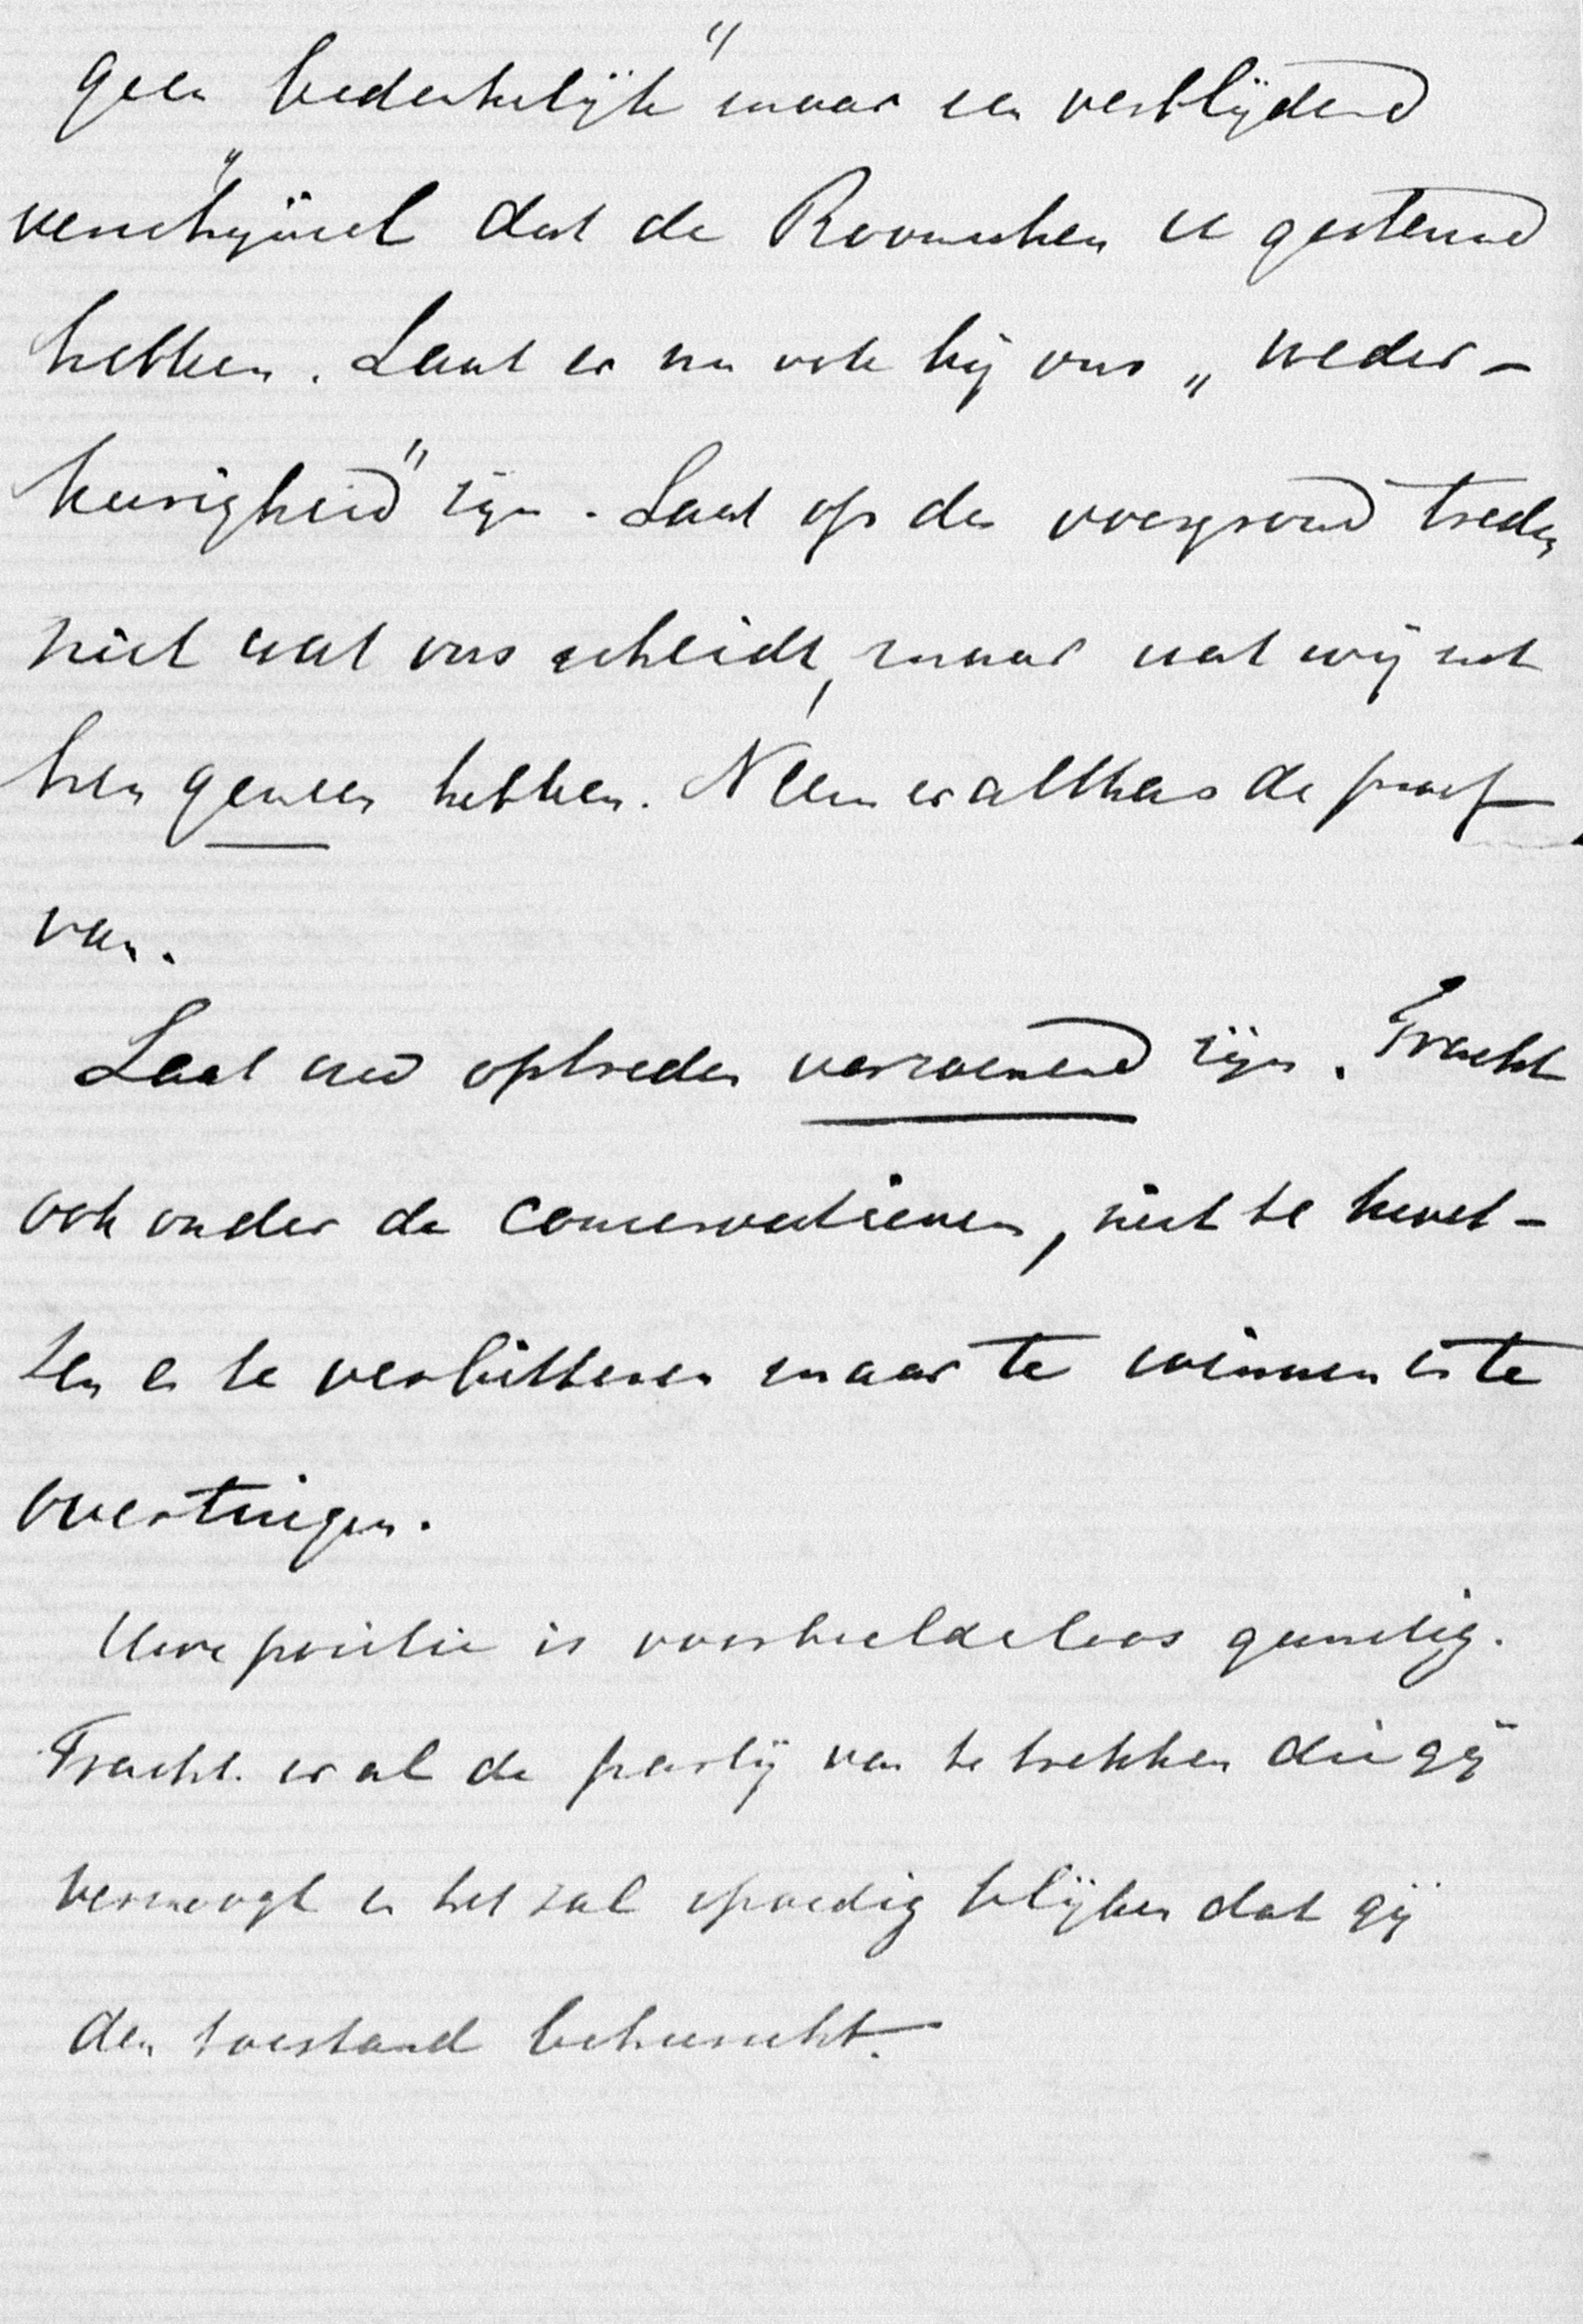 geen bedenkelijk" maar een verblijdend
verschijnsel dat de Roomschen u gesteund
hebben. Laat er nu ook bij ons „weder-
keerigheid" zijn. Laat op den voorgrond treden
niet wat ons scheidt, maar wat wij met
hen gemeen hebben. Neem er althans de proef
van.
Laat uw optreden verzoenend zijn. Tracht
ook onder de conservatieven, niet te kwet-
sen en te verbitteren maar te winnen en te
overtuigen.
Uwe positie is voorbeeldeloos gunstig.
Tracht er al de partij van te trekken die gij
vermoogt en het zal spoedig blijken dat gij
den toestand beheerscht.